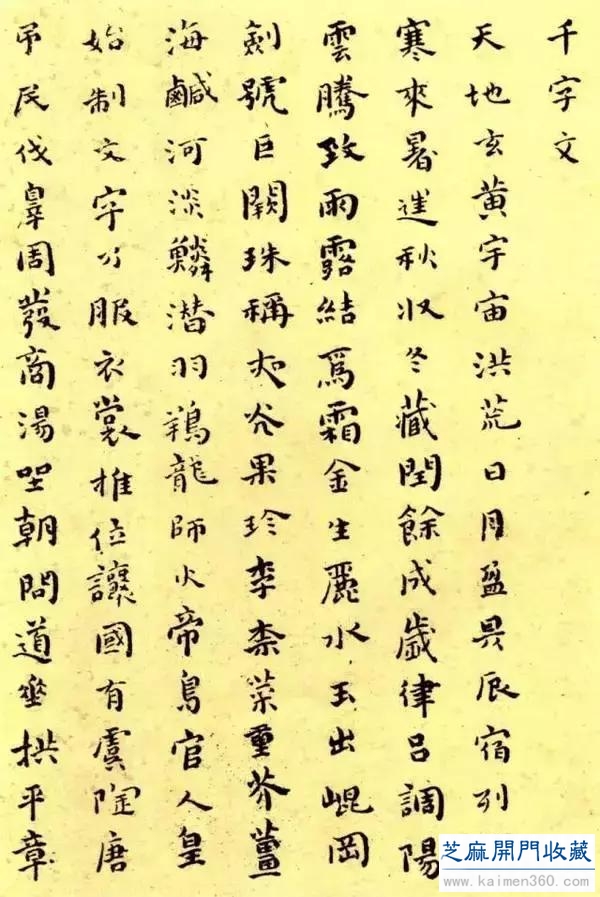 千字文
天地玄黃宇宙洪荒日月盈昃辰宿列
寒來暑往秋收冬藏閏餘成歲律呂調陽
雲騰致雨露結爲霜金生麗水玉出崐岡
劍號巨闕珠稱夜光果珍李柰菜重芥薑
海鹹河淡鱗潛羽翔龍師火帝鳥官人皇
始制文字乃服衣裳推位讓國有虞陶唐
吊民伐辠周發商湯坐朝問道垂拱平章
芝麻開門收藏
www.kaimen360.com